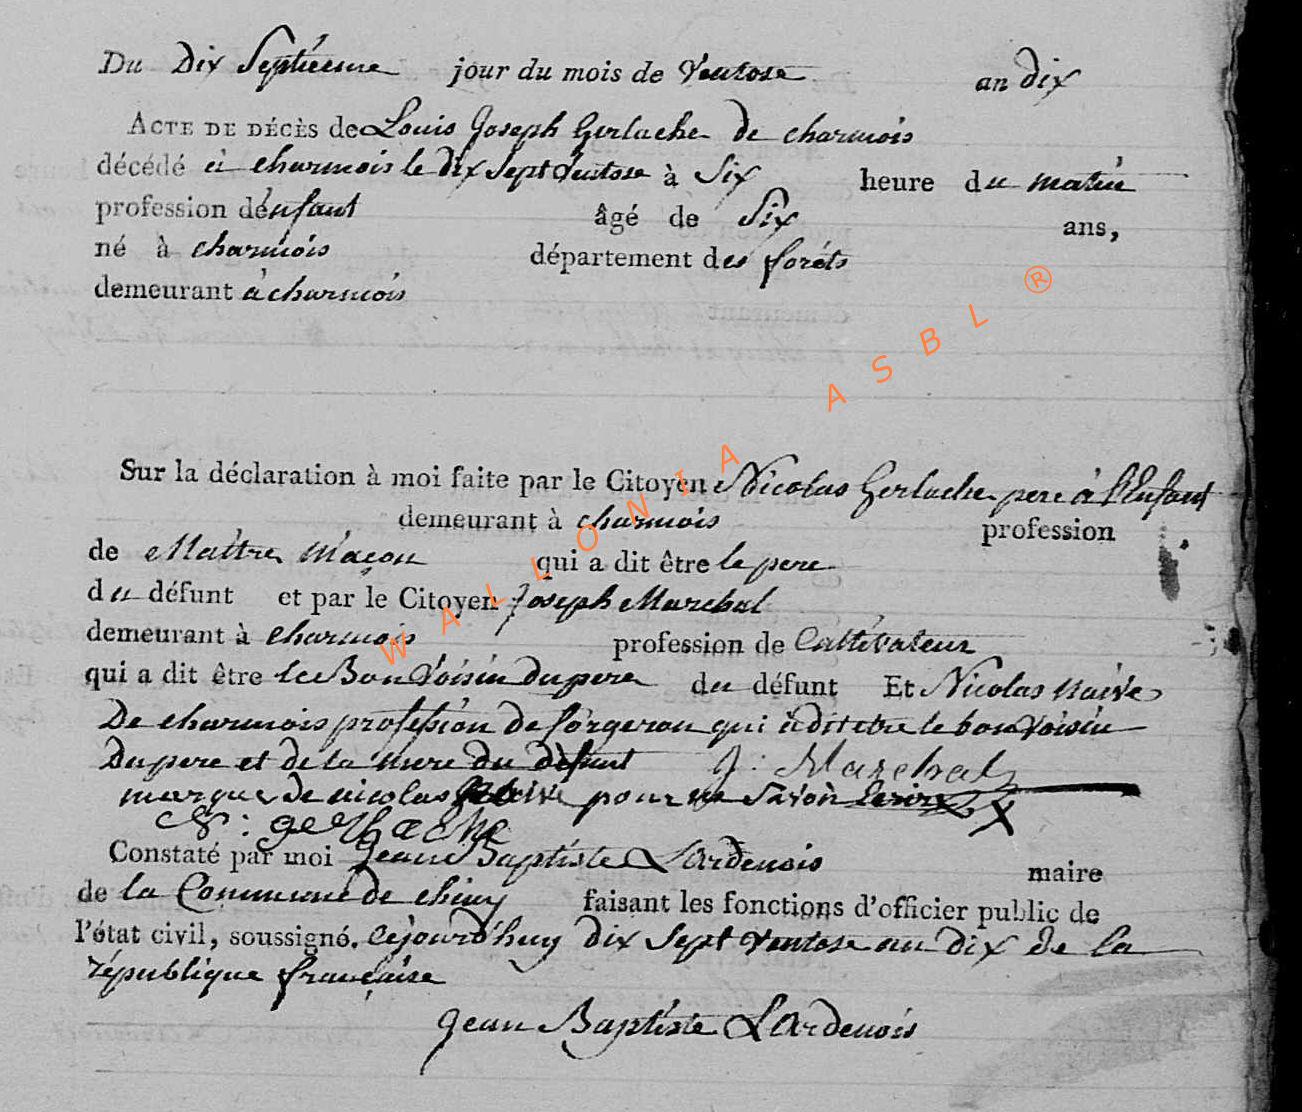 Du Dix Septieme jour du mois de Ventose an dix
ACTE DE DÉCÈS de Louis Joseph Gerlache de charmois
décédé à charmois le dix sept Ventose à Six heure du matin
profession dénfant âgé de Six ans,
né à charmois département des foréts
demeurant à charmois
Sur la déclaration à moi faite par le Citoyen Nicolas Gerlache pere à l'Enfant
demeurant à charmois profession
de Maitre Maçon qui a dit être le pere
du défunt et par le Citoyen Joseph Marchal
demeurant à charmois profession de Cultivateur
qui a dit être le Bon Voisin du pere du défunt Et Nicolas naive
De charmois profession de forgeron qui a dit etre le bon voisin
Du pere et de la mere du défunt J: Marchal
marque de nicolas pour ne Savoir Ecrire X
N: gerlache
Constaté par moi Jean Baptiste Lardenois maire
de la Commune de chiny faisant les fonctions d'officier public de
l'état civil, soussigné. cejourd'huy dix Sept Ventose an Dix de la
république française
Jean Baptiste Lardenois
WALLONIA ASBL ®